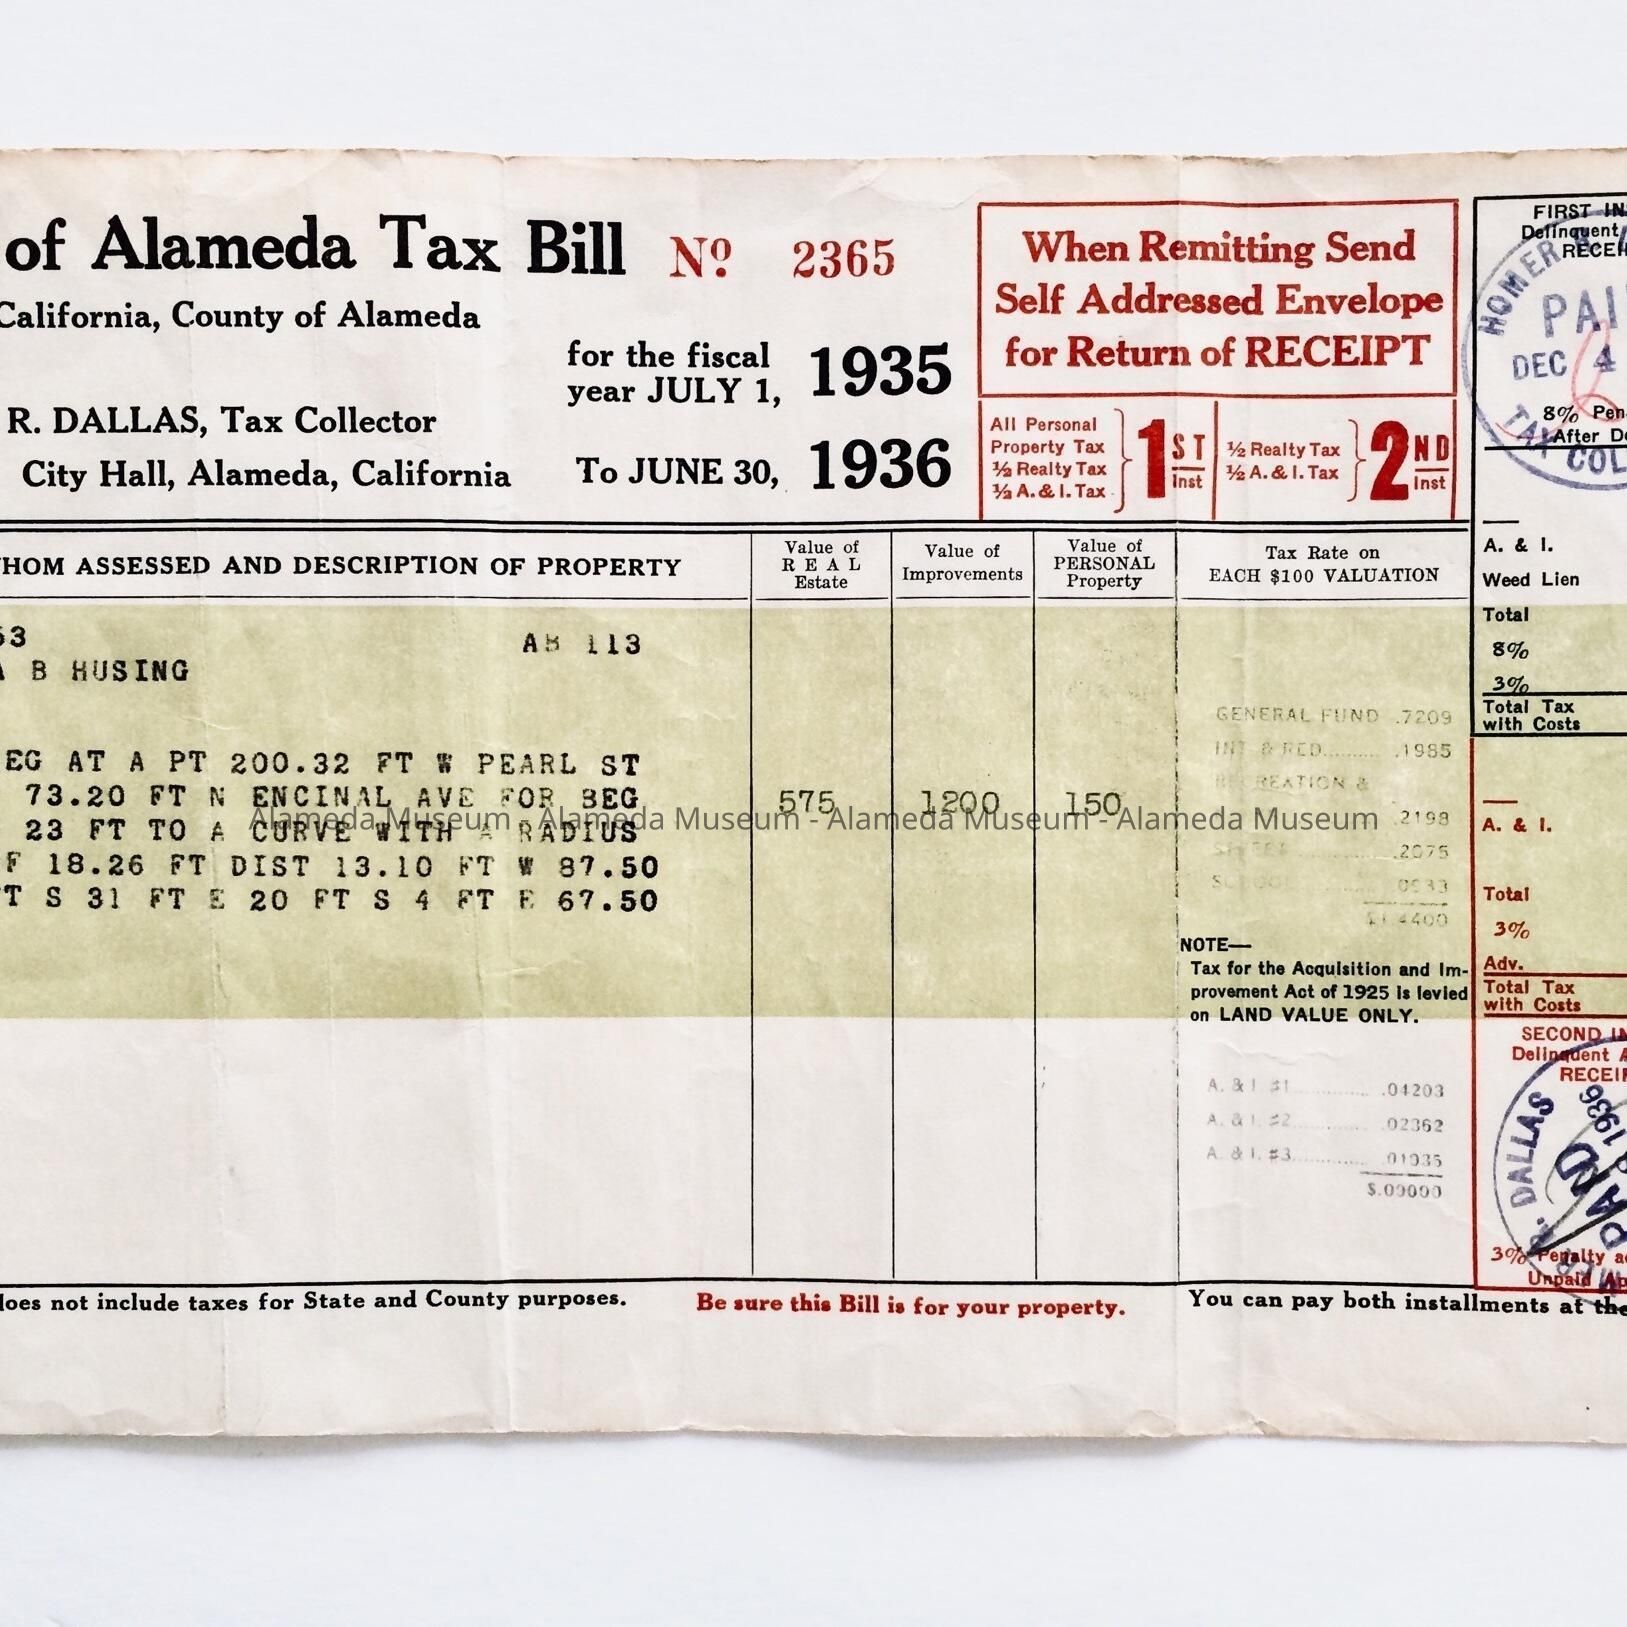 of Alameda Tax Bill Nº 2365
California, County of Alameda
for the fiscal
year JULY 1, 1935
R. DALLAS, Tax Collector
City Hall, Alameda, California
To JUNE 30, 1936
When Remitting Send
Self Addressed Envelope
for Return of RECEIPT
All Personal
Property Tax
½ Realty Tax
½ A. & I. Tax
1ST
Inst
½ Realty Tax
½ A. & I. Tax
2ND
Inst
FIRST IN
Delinquent
RECEI
HOMER
PAI
DEC 4
TAX COL
8% Pen
After De
WHOM ASSESSED AND DESCRIPTION OF PROPERTY
Value of
REAL
Estate
Value of
Improvements
Value of
PERSONAL
Property
Tax Rate on
EACH $100 VALUATION
63 AB 113
A B HUSING
EG AT A PT 200.32 FT W PEARL ST
73.20 FT N ENCINAL AVE FOR BEG
23 FT TO A CURVE WITH A RADIUS
F 18.26 FT DIST 13.10 FT W 87.50
T S 31 FT E 20 FT S 4 FT E 67.50
575 1200 150
GENERAL FUND .7209
INT & RED......... .1985
RECREATION &
.2198
.2075
SCHOOL
$1.4400
NOTE—
Tax for the Acquisition and Im-
provement Act of 1925 is levied
on LAND VALUE ONLY.
A. & I. #1............... .04203
A. & I. #2............... .02362
A. & I. #3............... .01935
A. & I.
Weed Lien
Total
8%
3%
Total Tax
with Costs
A. & I.
Total
3%
Adv.
Total Tax
with Costs
SECOND IN
Delinquent A
RECEI
R. DALLAS
1936
3% Penalty a
Unpaid Ap
does not include taxes for State and County purposes. Be sure this Bill is for your property. You can pay both installments at the
Alameda Museum - Alameda Museum - Alameda Museum - Alameda Museum